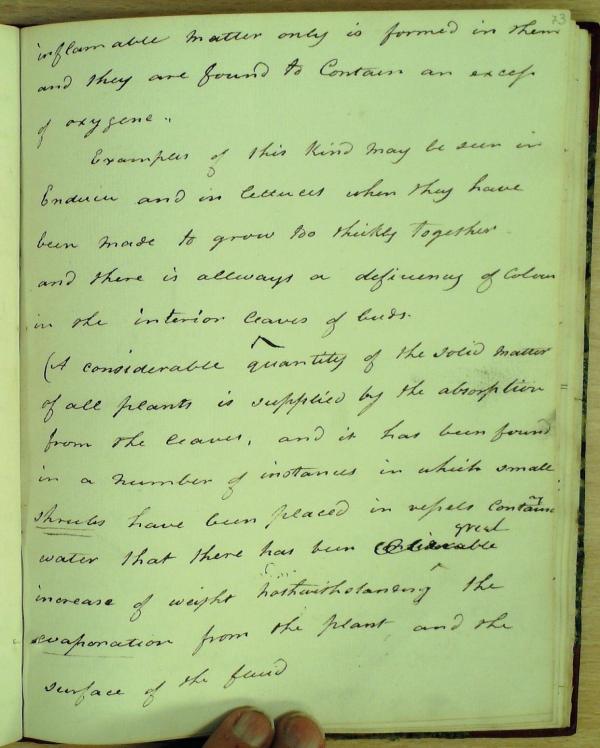 73
inflamable matter only is formed in them
and they are found to Contain an excess
of oxygene.
Examples of this Kind may be seen in
Endivie and in lettuces when they have
been made to grow too thickly together
and there is allways a deficiency of Colour
in the interior leaves of buds.
(A considerable quantity of the solid matter
of all plants is supplied by the absorption
from the leaves, and it has been found
in a number of instances in which small
shrubs have been placed in vessels containg
great
water that there has been considerable
increase of weight nothwithstanding the
evaporation from the plant and the
surface of the fluid